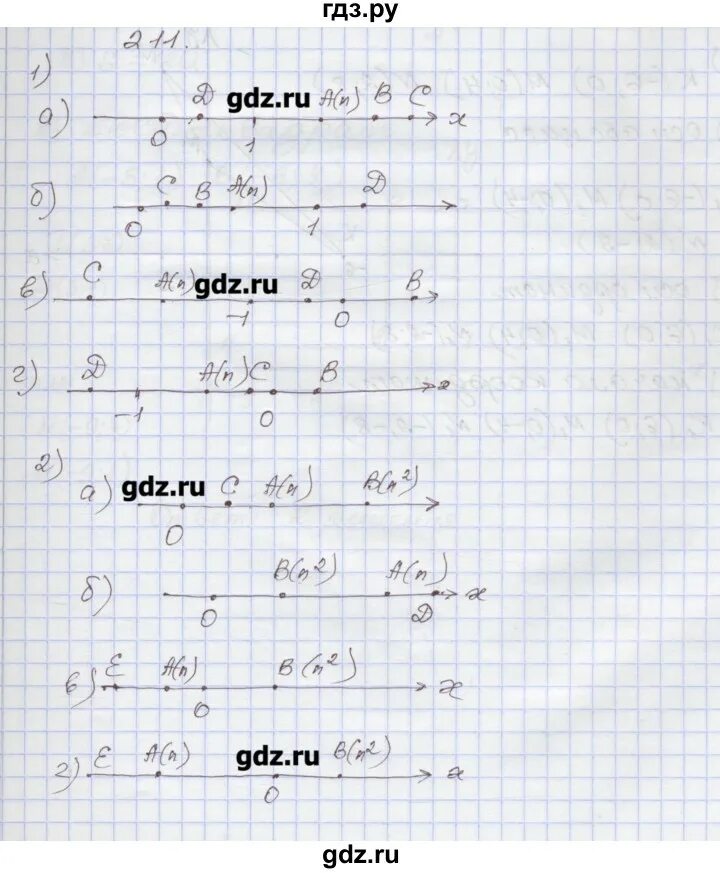 гдз.ру
211.
1)
а) D gdz.ru A(n) B C
0 1 x
б) C B A(n) D
0 1
в) C A(n) gdz.ru D B
-1 0
г) D A(n) C B
-1 0 x
2)
а) gdz.ru C A(n) B(n²)
0
б) B(n²) A(n)
0 D x
в) E A(n) B(n²)
0 x
г) E A(n) gdz.ru B(n²)
0 x
gdz.ru